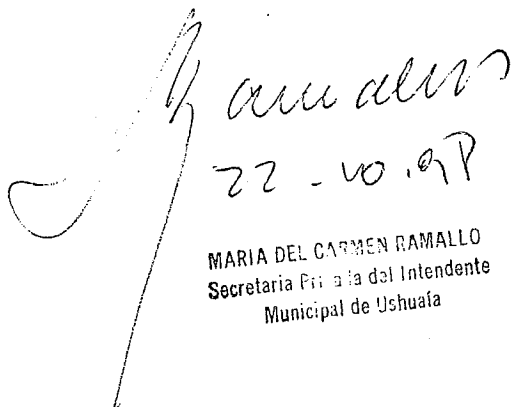 Ramallo
22-10.98
MARIA DEL CARMEN RAMALLO
Secretaria Privada del Intendente
Municipal de Ushuaía